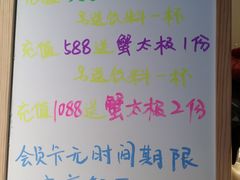 另送饮料一杯
充值588送蟹太极1份
另送饮料一杯
充值1088送蟹太极2份
会员卡无时间期限